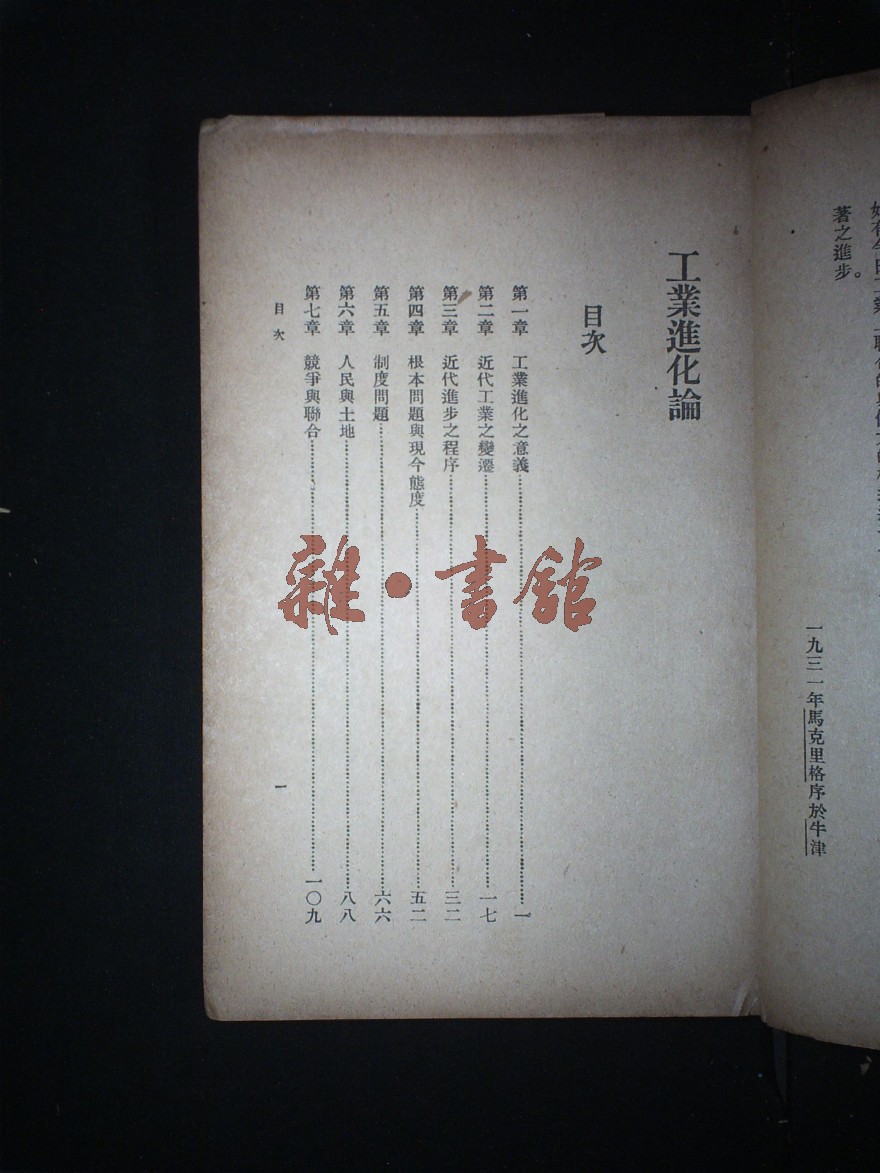 著之進步。
一九三一年馬克里格序於牛津
工業進化論
目次
第一章 工業進化之意義……一
第二章 近代工業之變遷……一七
第三章 近代進步之程序……三二
第四章 根本問題與現今態度……五二
第五章 制度問題……六六
第六章 人民與土地……八八
第七章 競爭與聯合……一〇九
目次
一
雜·書館